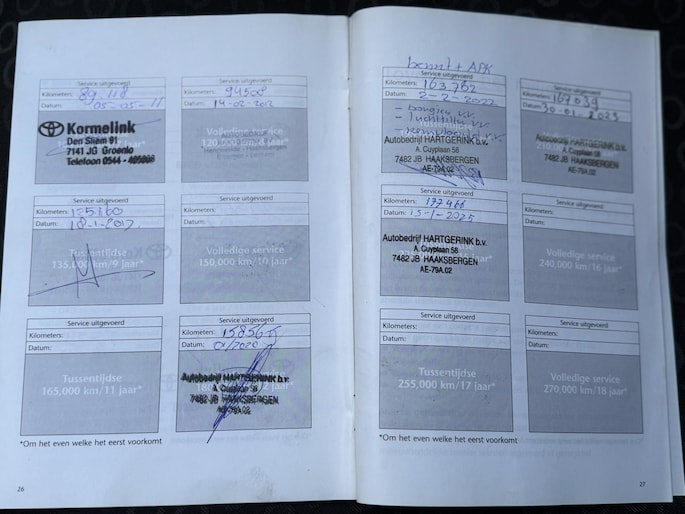 Service uitgevoerd
Kilometers: 89.118
Datum: 05-05-11
Kormelink
Den Sliem 91
7141 JG Groenlo
Telefoon 0544 -
Service uitgevoerd
Kilometers: 94500
Datum: 14-02-2012
Volledige service
120,000 km/8 jaar*
Service uitgevoerd
Kilometers: 125160
Datum: 18-1-2017
Tussentijdse
135,000 km/9 jaar*
Service uitgevoerd
Kilometers:
Datum:
Volledige service
150,000 km/10 jaar*
Service uitgevoerd
Kilometers:
Datum:
Tussentijdse
165,000 km/11 jaar*
Service uitgevoerd
Kilometers:
Datum: 01/2020
Autobedrijf HARTGERINK b.v.
A. Cuyplaan 58
7482 JB HAAKSBERGEN
AE-79A.02
*Om het even welke het eerst voorkomt
26
beurt + APK
Service uitgevoerd
Kilometers: 163.762
Datum: 2-2-2022
- bougies v.v.
- luchtfilter v.v.
Autobedrijf HARTGERINK b.v.
A. Cuyplaan 58
7482 JB HAAKSBERGEN
AE-79A.02
Service uitgevoerd
Kilometers: 167039
Datum: 30-01-2023
Autobedrijf HARTGERINK b.v.
A. Cuyplaan 58
7482 JB HAAKSBERGEN
AE-79A.02
Service uitgevoerd
Kilometers: 177466
Datum: 15-1-2025
Autobedrijf HARTGERINK b.v.
A. Cuyplaan 58
7482 JB HAAKSBERGEN
AE-79A.02
Service uitgevoerd
Kilometers:
Datum:
Volledige service
240,000 km/16 jaar*
Service uitgevoerd
Kilometers:
Datum:
Tussentijdse
255,000 km/17 jaar*
Service uitgevoerd
Kilometers:
Datum:
Volledige service
270,000 km/18 jaar*
*Om het even welke het eerst voorkomt
27